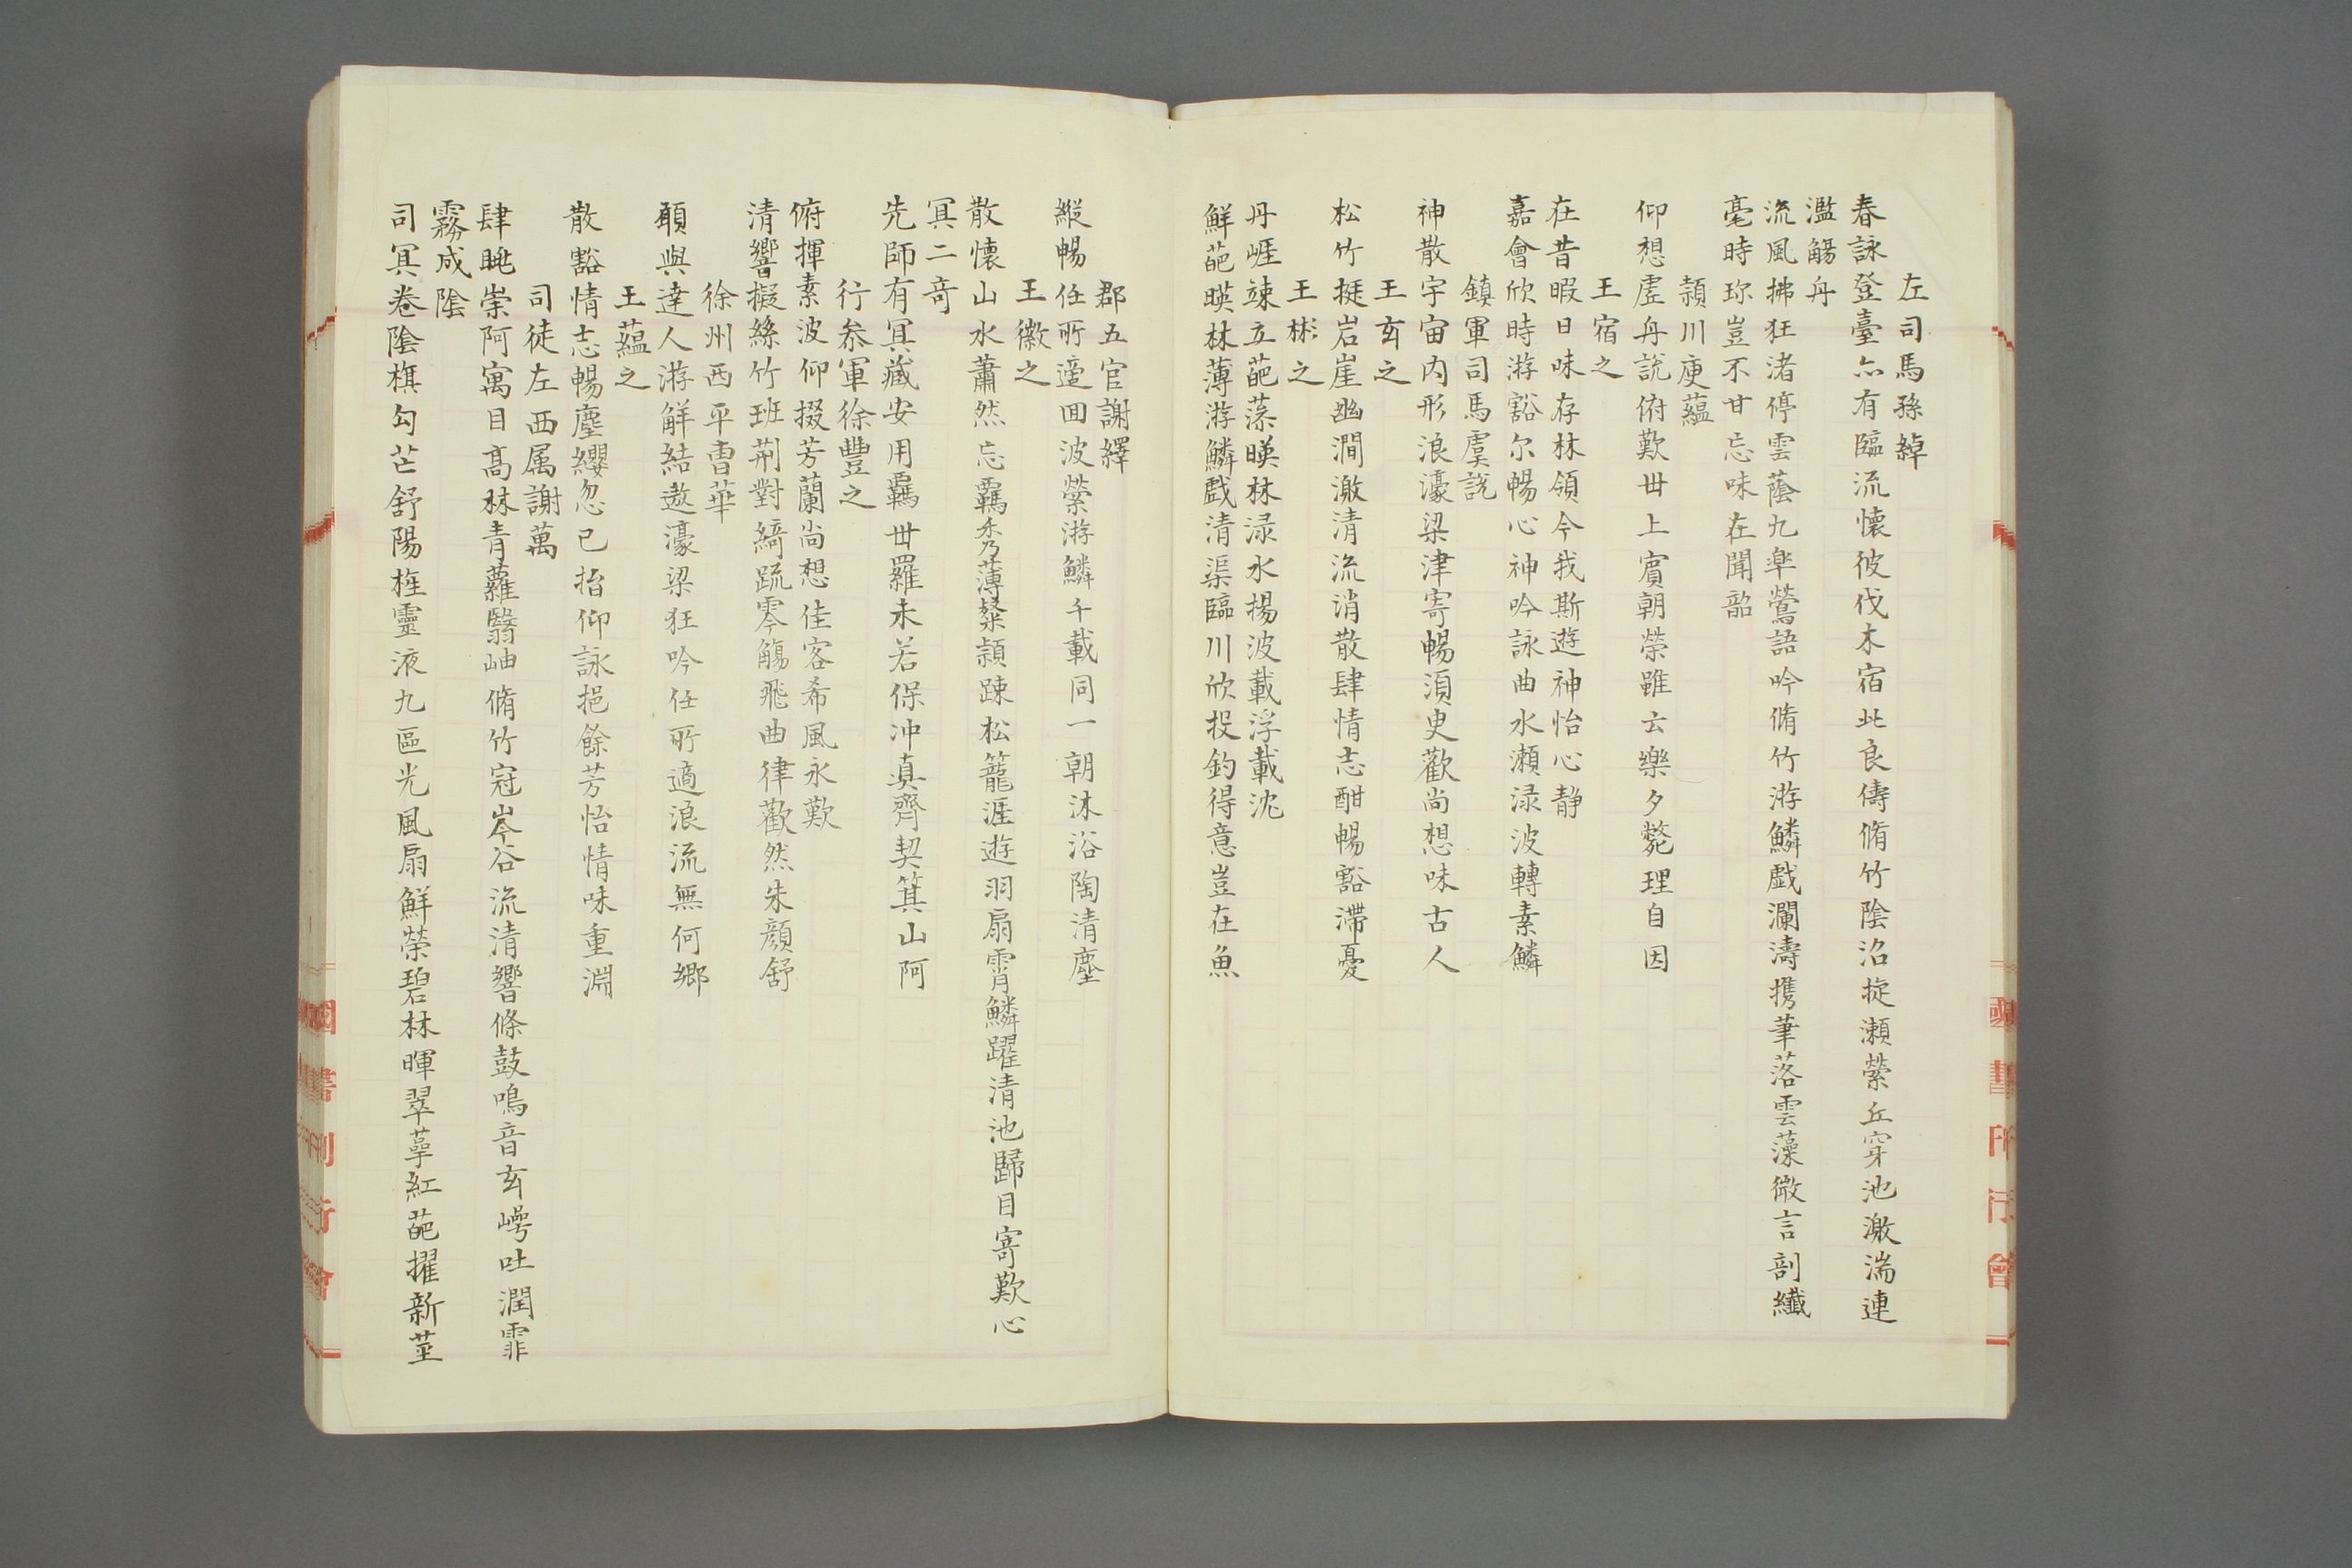 左司馬孫綽
春詠登臺亦有臨流懷彼伐木宿此良儔脩竹陰沼掟瀨縈丘穿池激湍連
濫觴舟
流風拂狂渚停雲蔭九臯鶯語吟脩竹游鱗戲瀾濤携筆落雲藻微言剖纖
毫時珎豈不甘忘味在聞韶
潁川庾蘊
仰想虛舟說俯歎丗上賓朝榮雖云樂夕斃理自因
王宿之
在昔暇日味存林領今我斯遊神怡心静
嘉會欣時游豁尔暢心神吟詠曲水瀨渌波轉素鱗
鎮軍司馬虞說
神散宇宙内形浪濠梁津寄暢湏臾歡尚想味古人
王玄之
松竹挺岩崖幽澗激清流消散肆情志酣暢豁滯憂
王彬之
丹崕竦立葩藻暎林渌水揚波載浮載沈
鮮葩暎林薄游鱗戲清渠臨川欣投釣得意豈在魚
郡五官謝繹
縱暢任所適囬波縈游鱗千載同一朝沐浴陶清塵
王徽之
散懷山水蕭然忘羈秀薄粲潁踈松籠涯遊羽扇霄鱗躍清池歸目寄歎心
冥二竒
先師有冥藏安用羈丗羅未若保冲真齊契箕山阿
行叅軍徐豐之
俯揮素波仰掇芳蘭尚想佳客希風永歎
清響擬絲竹班荊對綺疏零觴飛曲律歡然朱顏舒
徐州西平曹華
願與達人游解結遨濠梁狂吟任所適浪流無何鄉
王蘊之
散豁情志暢塵纓忽已捐仰詠挹餘芳怡情味重淵
司徒左西属謝萬
肆眺崇阿寓目髙林青蘿翳岫脩竹冠岑谷流清響條鼓鳴音玄崿吐潤霏
霧成陰
司冥卷陰旗勾芒舒陽旌靈液九區光風扇鮮榮碧林暉翠萼紅葩擢新莖
國書刊行會
國書刊行會